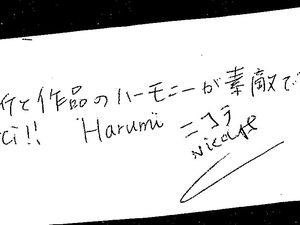 と作品のハーモニーが素敵で
ci!! Harumi ニコラ
Nicolas